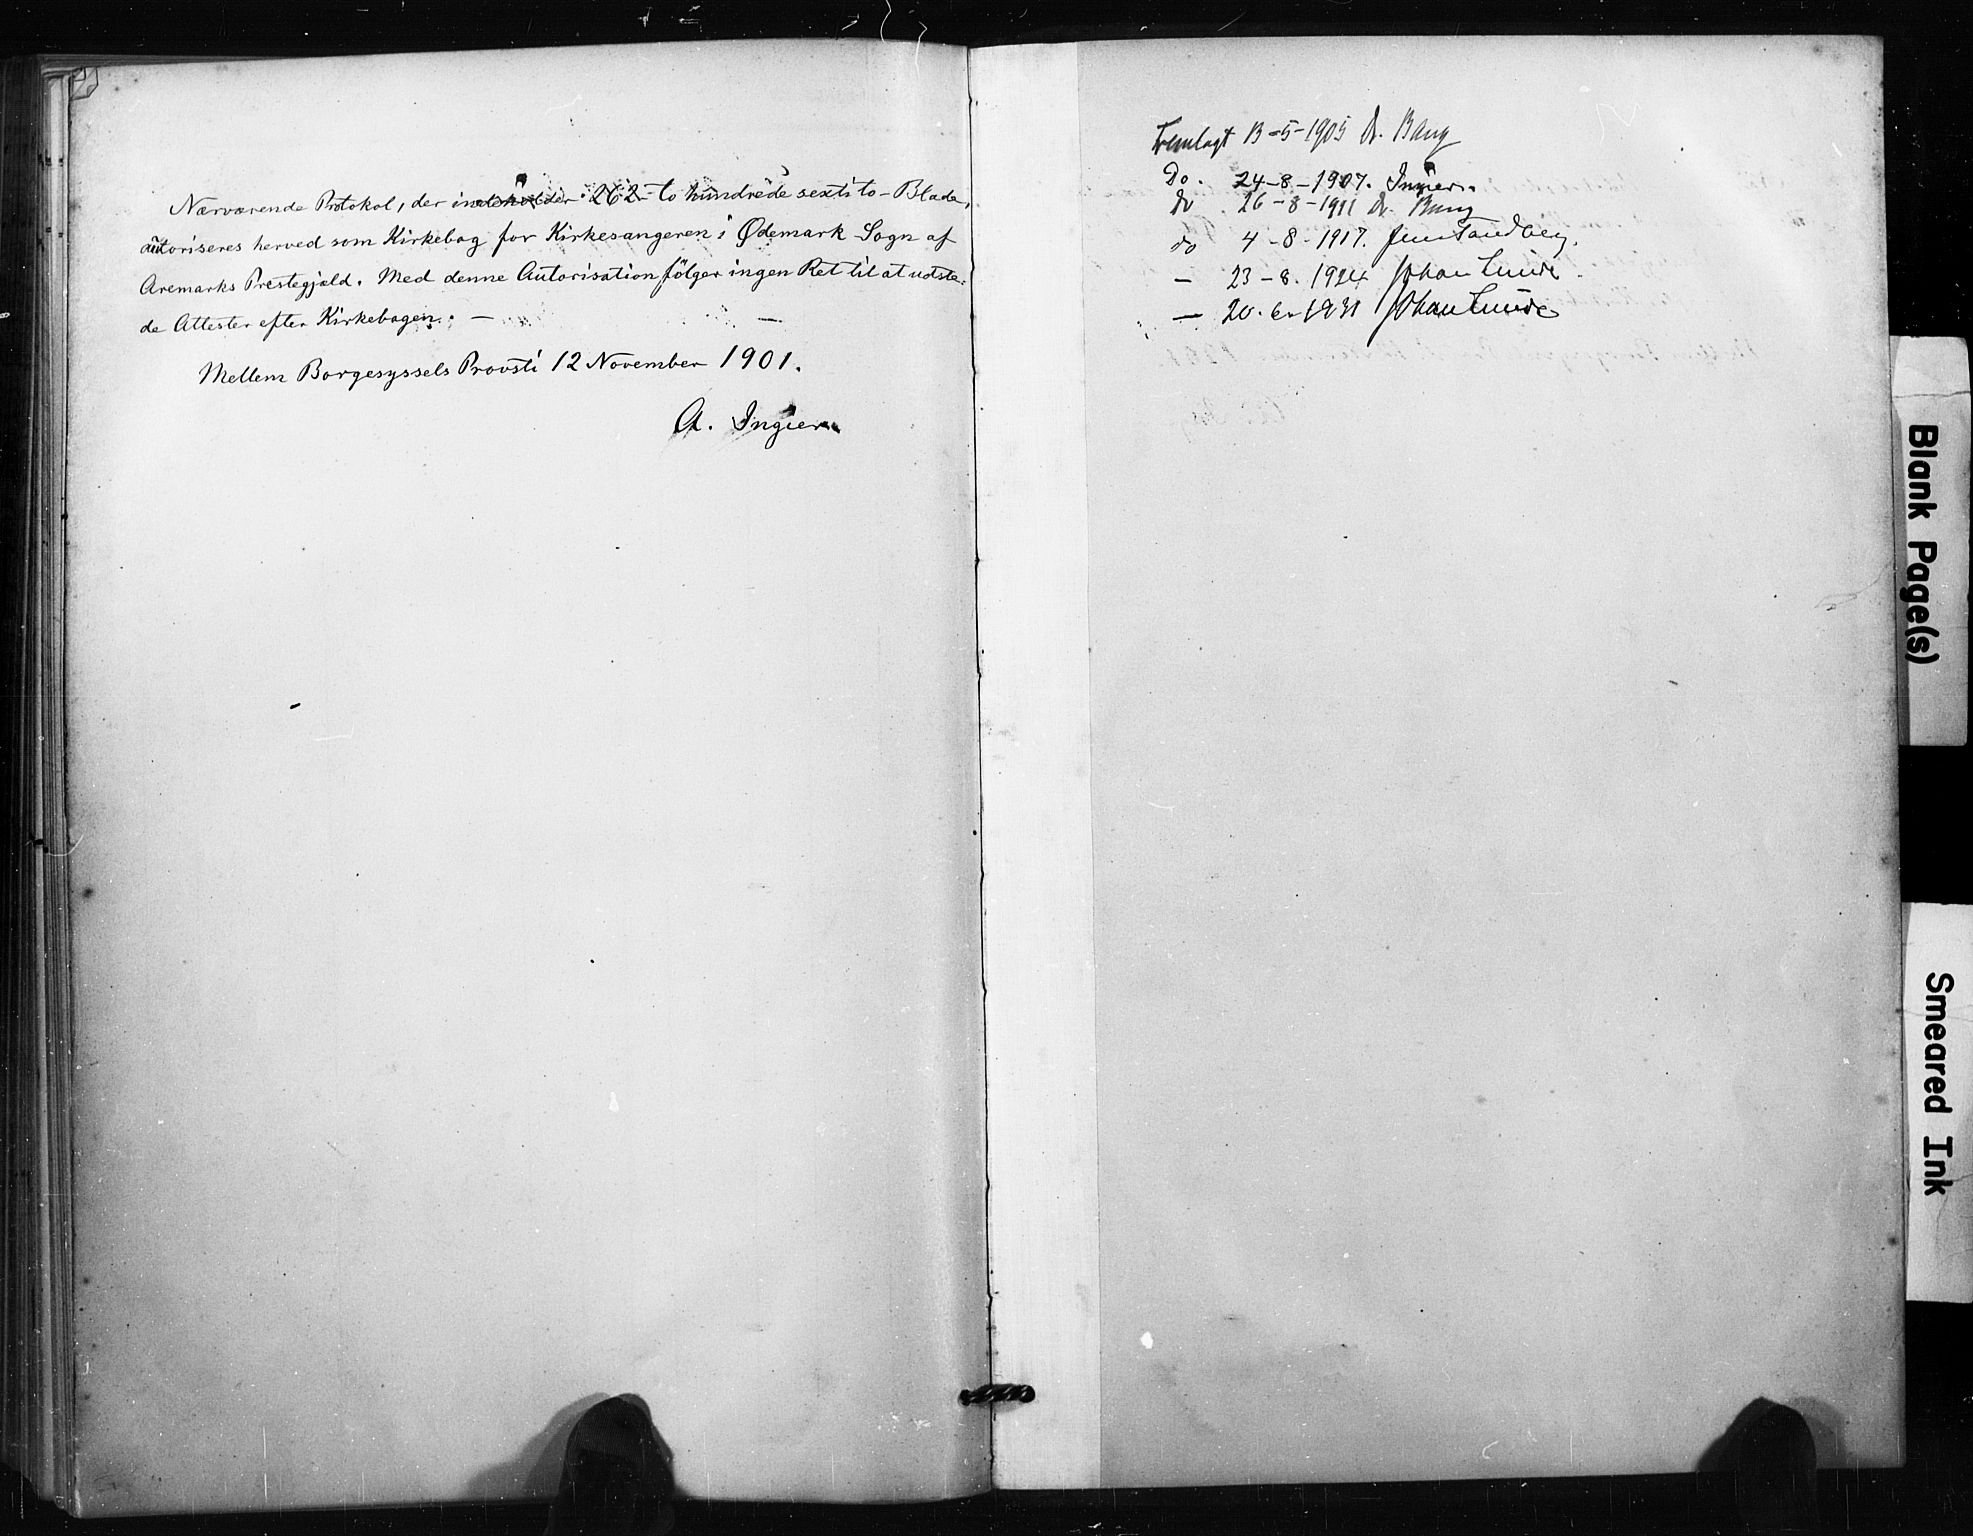 Nærværende Protokol, der indeholder 262 - to hundrede sexti to - Blade,
autoriseres herved som Kirkebog for Kirkesangeren i Ødemark Sogn af
Aremarks Prestegjæld. Med denne Autorisation følger ingen Ret til at udste-
de Attester efter Kirkebogen. —
Mellem Borgesyssels Provsti 12 November 1901.
A. Ingier
Fremlagt 13-5-1905 Dr. Bang
Do. 24-8-1907. Ingier.
Do 26-8-1911 Dr. Bang
do 4-8-1917. Jens Tandberg.
— 23-8. 1924 Johan Lunde
— 20. 6. 1931 Johan Lunde
Blank Page(s)
Smeared Ink